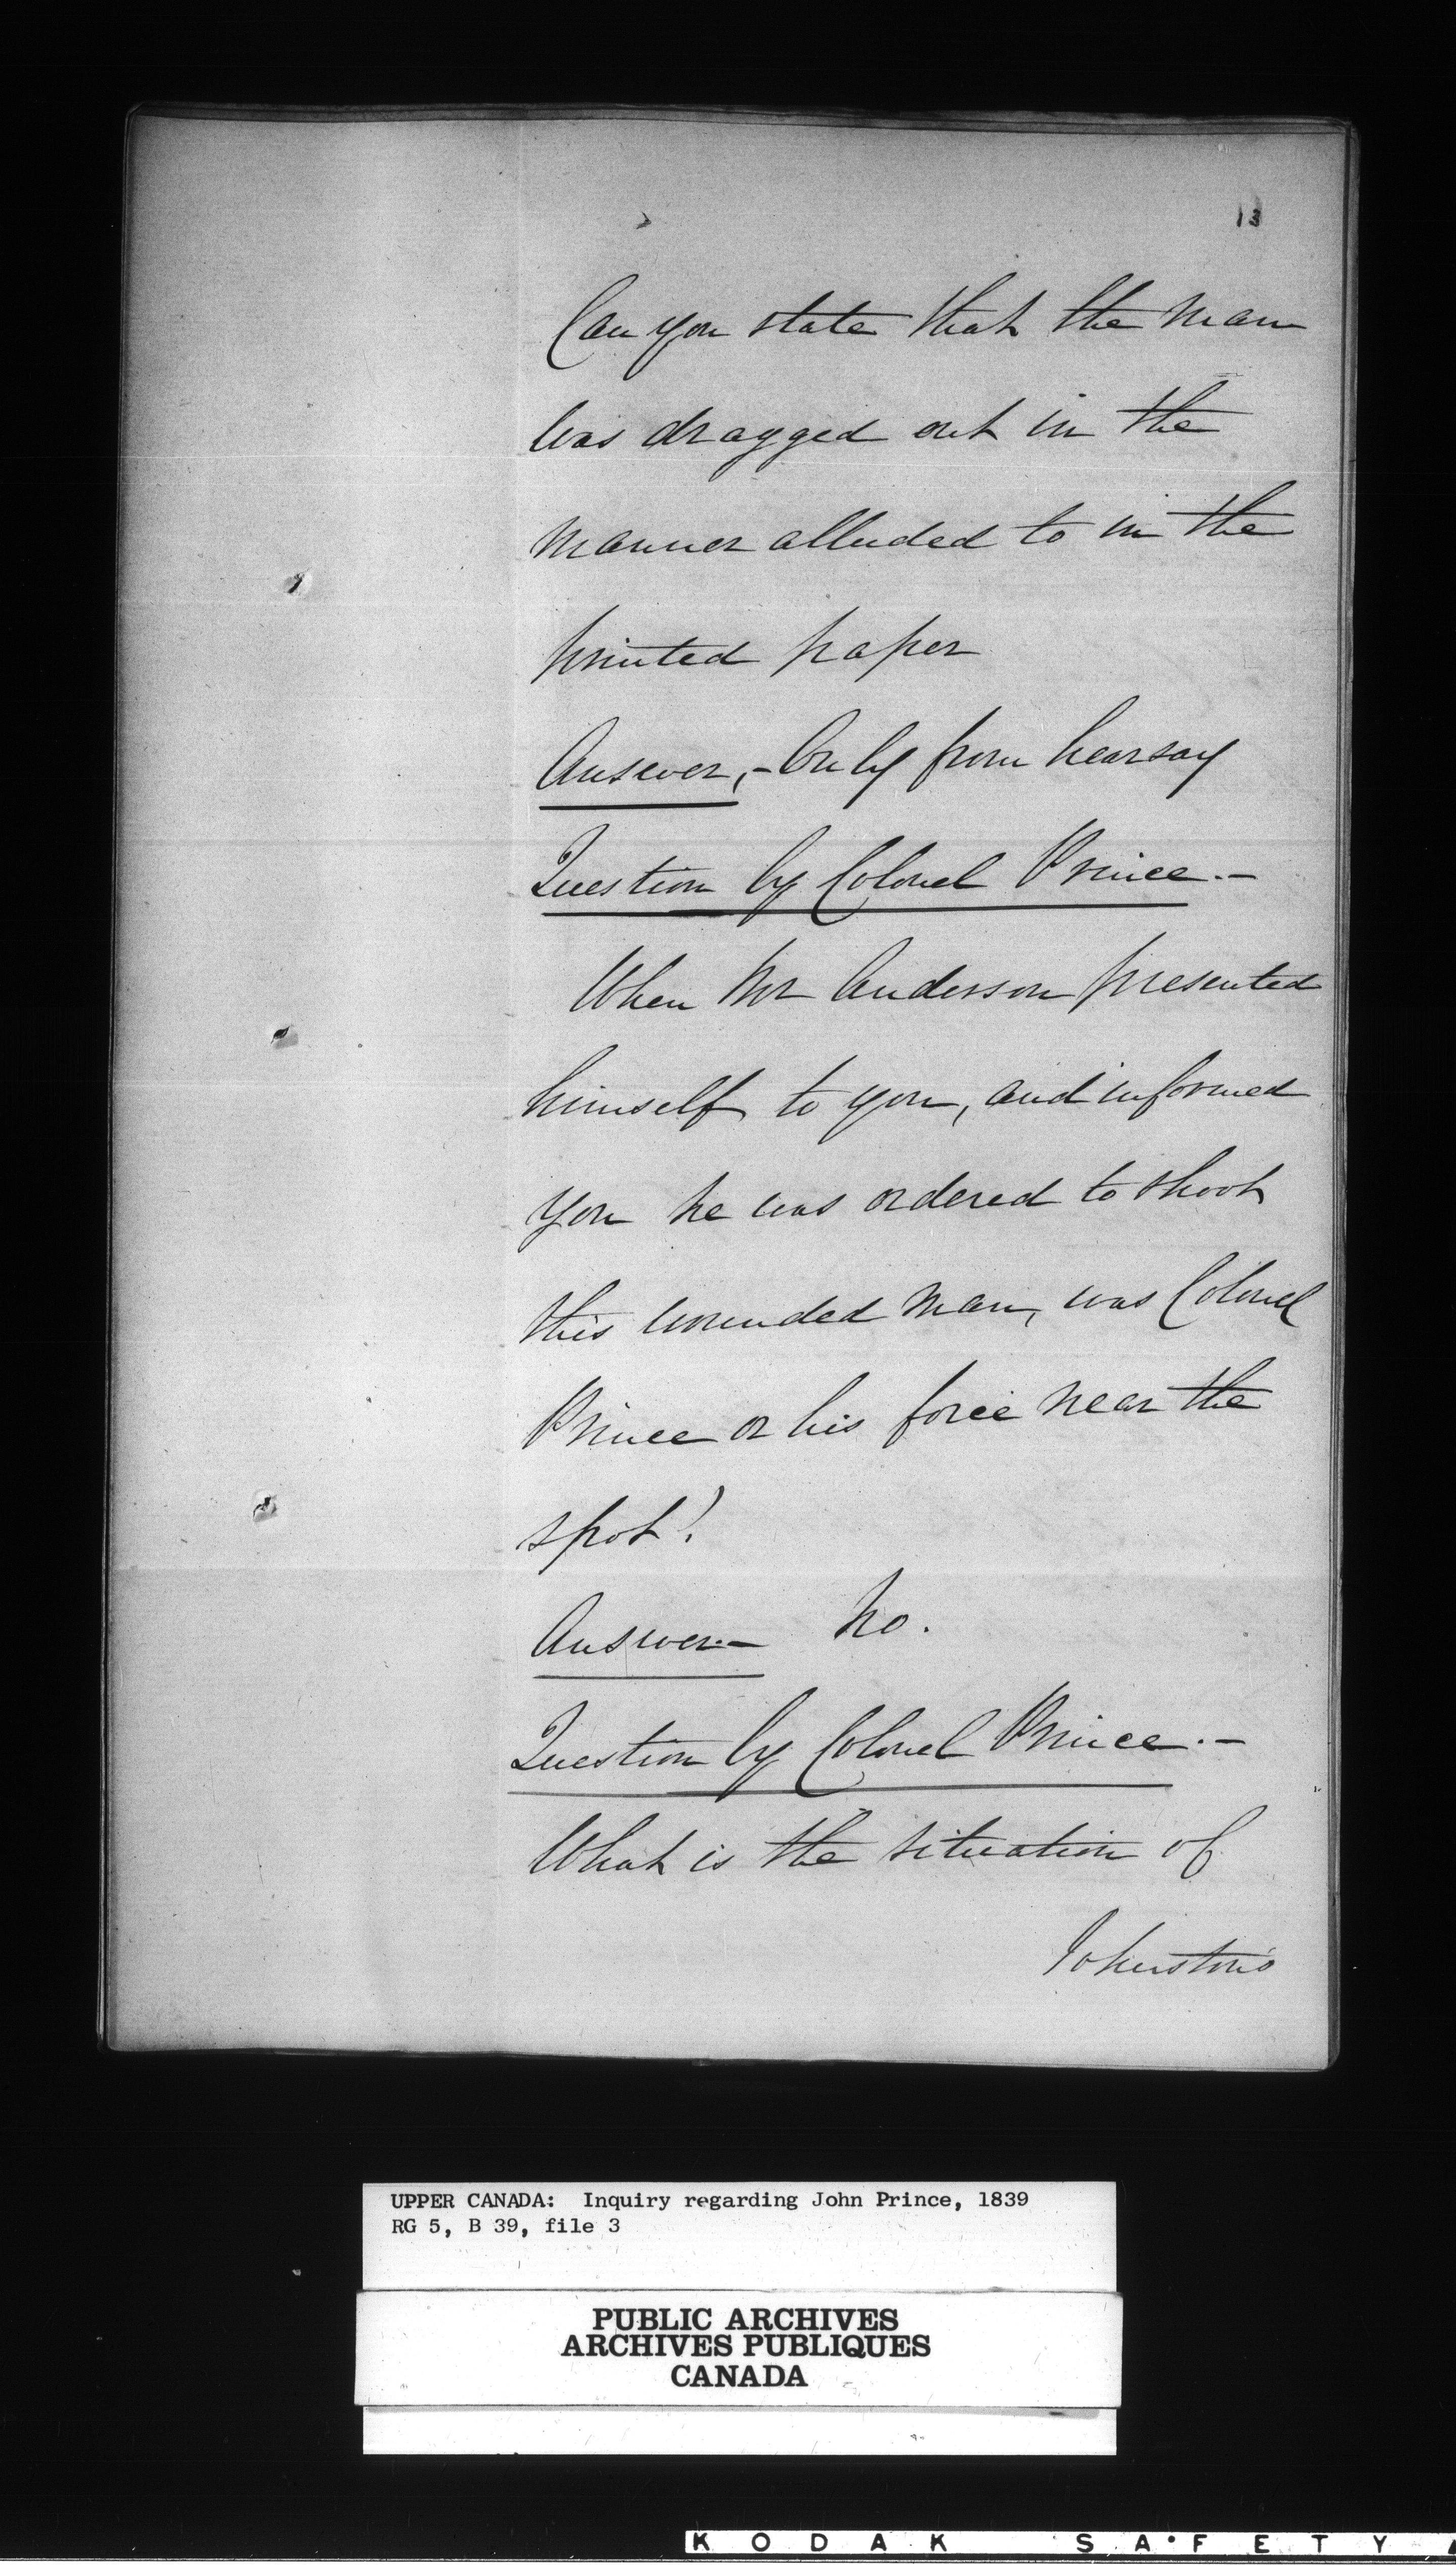 13
Can you state that the man
was dragged out in the
manner alluded to in the
printed paper
Answer,- Only from hearsay
Question by Colonel Prince.-
When Mr Anderson presented
himself to you, and informed
you he was ordered to shoot
this wounded man, was Colonel
Prince or his force near the
spot?
Answer.- No.
Question by Colonel Prince.-
What is the situation of
Johnston's
UPPER CANADA: Inquiry regarding John Prince, 1839
RG 5, B 39, file 3
PUBLIC ARCHIVES
ARCHIVES PUBLIQUES
CANADA
KODAK SAFETY